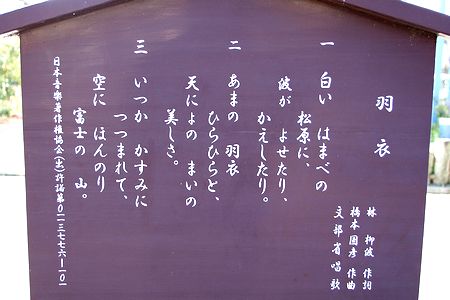 羽衣
林 柳波 作詞
橋本国彦 作曲
文部省唱歌
一 白い はまべの
松原に、
波が よせたり、
かえしたり。
二 あまの 羽衣
ひらひらと、
天にょの まいの
美しさ。
三 いつか かすみに
つつまれて、
空に ほんのり
富士の 山。
日本音楽著作権協会(出)許諾第〇一三七七六一一〇一